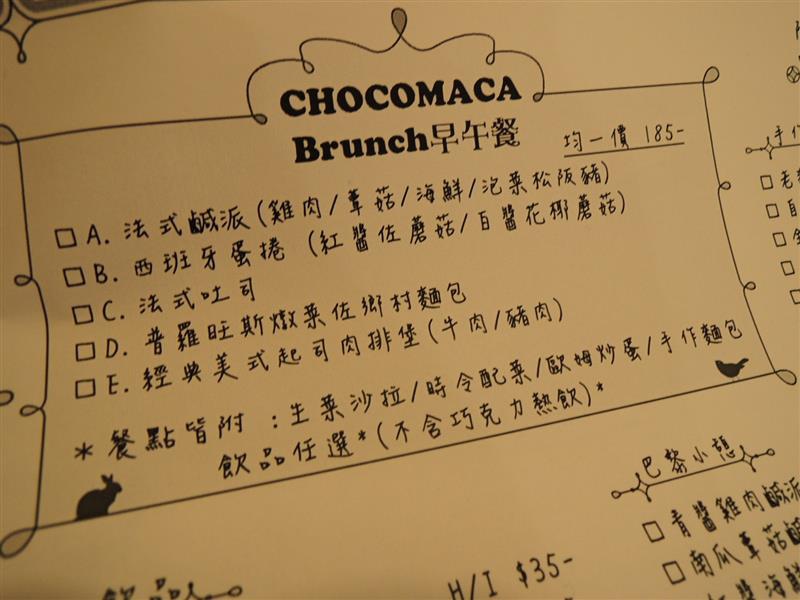 CHOCOMACA
Brunch早午餐
均一價 185-
□ A. 法式鹹派(雞肉/蕈菇/海鮮/泡菜松阪豬)
□ B. 西班牙蛋捲 (紅醬佐蘑菇/白醬花椰蘑菇)
□ C. 法式吐司
□ D. 普羅旺斯燉菜佐鄉村麵包
□ E. 經典美式起司肉排堡(牛肉/豬肉)
* 餐點皆附 :生菜沙拉/時令配菜/歐姆炒蛋/手作麵包
飲品任選*(不含巧克力熱飲)*
手作
巴黎小憩
□ 青醬雞肉鹹派
□ 南瓜蕈菇鹹
紅醬海鮮
H/I $35-
飲品